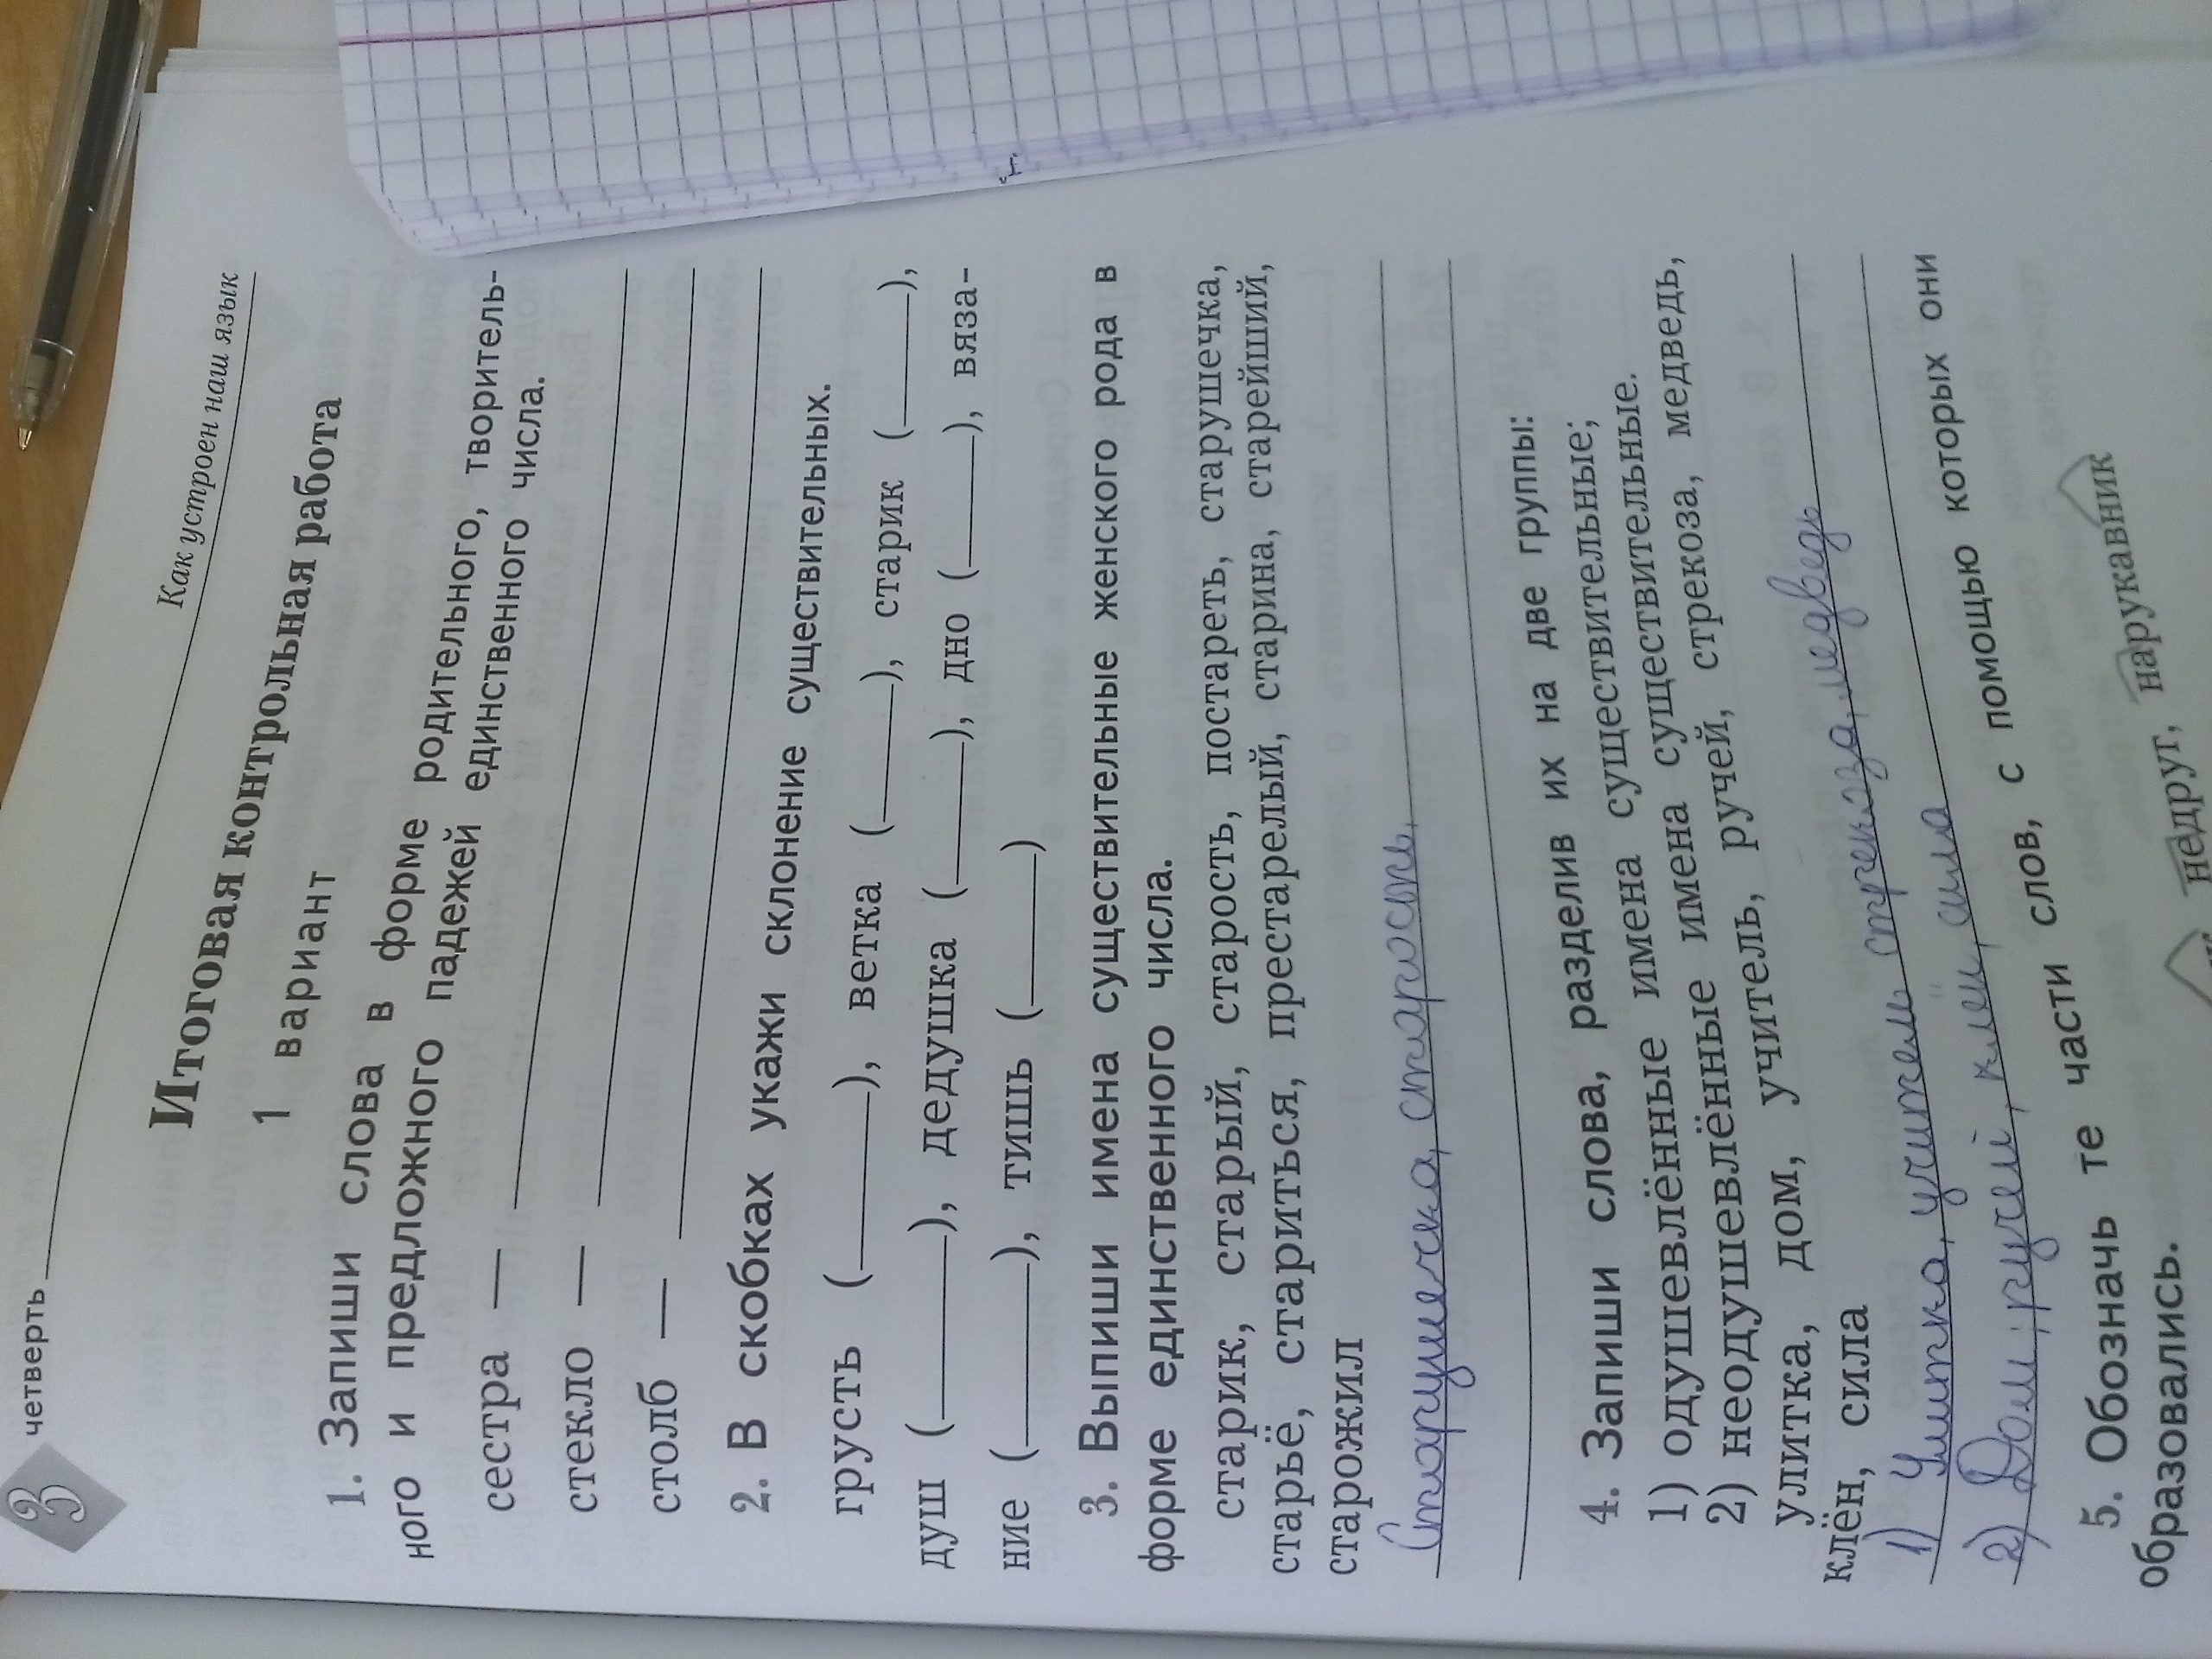 3
четверть
Как устроен наш язык
Итоговая контрольная работа
1 вариант
1. Запиши слова в форме родительного, творитель-
ного и предложного падежей единственного числа.
сестра —
стекло —
столб —
2. В скобках укажи склонение существительных.
грусть (), ветка (), старик (),
душ (), дедушка (), дно (), вяза-
ние (), тишь ()
3. Выпиши имена существительные женского рода в
форме единственного числа.
старик, старый, старость, постареть, старушечка,
старьё, стариться, престарелый, старина, старейший,
старожил
Старушечка, старость,
4. Запиши слова, разделив их на две группы:
1) одушевлённые имена существительные;
2) неодушевлённые имена существительные.
улитка, дом, учитель, ручей, стрекоза, медведь,
клён, сила
1) Улитка, учитель стрекоза, медведь
2) Дом, ручей, клен, сила
5. Обозначь те части слов, с помощью которых они
образовались.
недруг, нарукавник